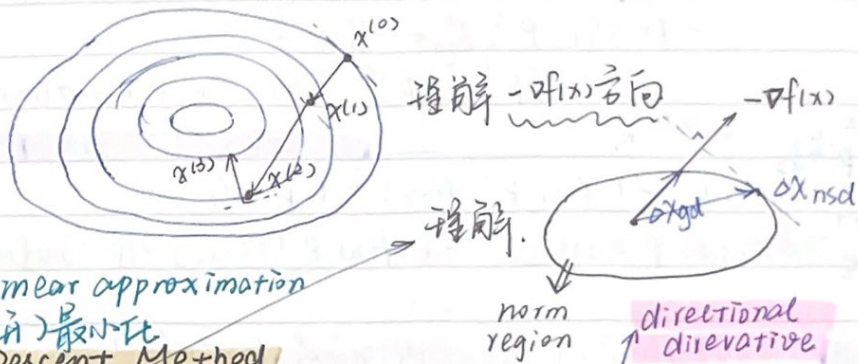 x⁽⁰⁾
x⁽¹⁾
x⁽²⁾
x⁽³⁾
理解 -∇f(x)方向
-∇f(x)
Δxgd
Δxnsd
理解.
norm
region
directional
direvative
near approximation
最小化
Descent Method